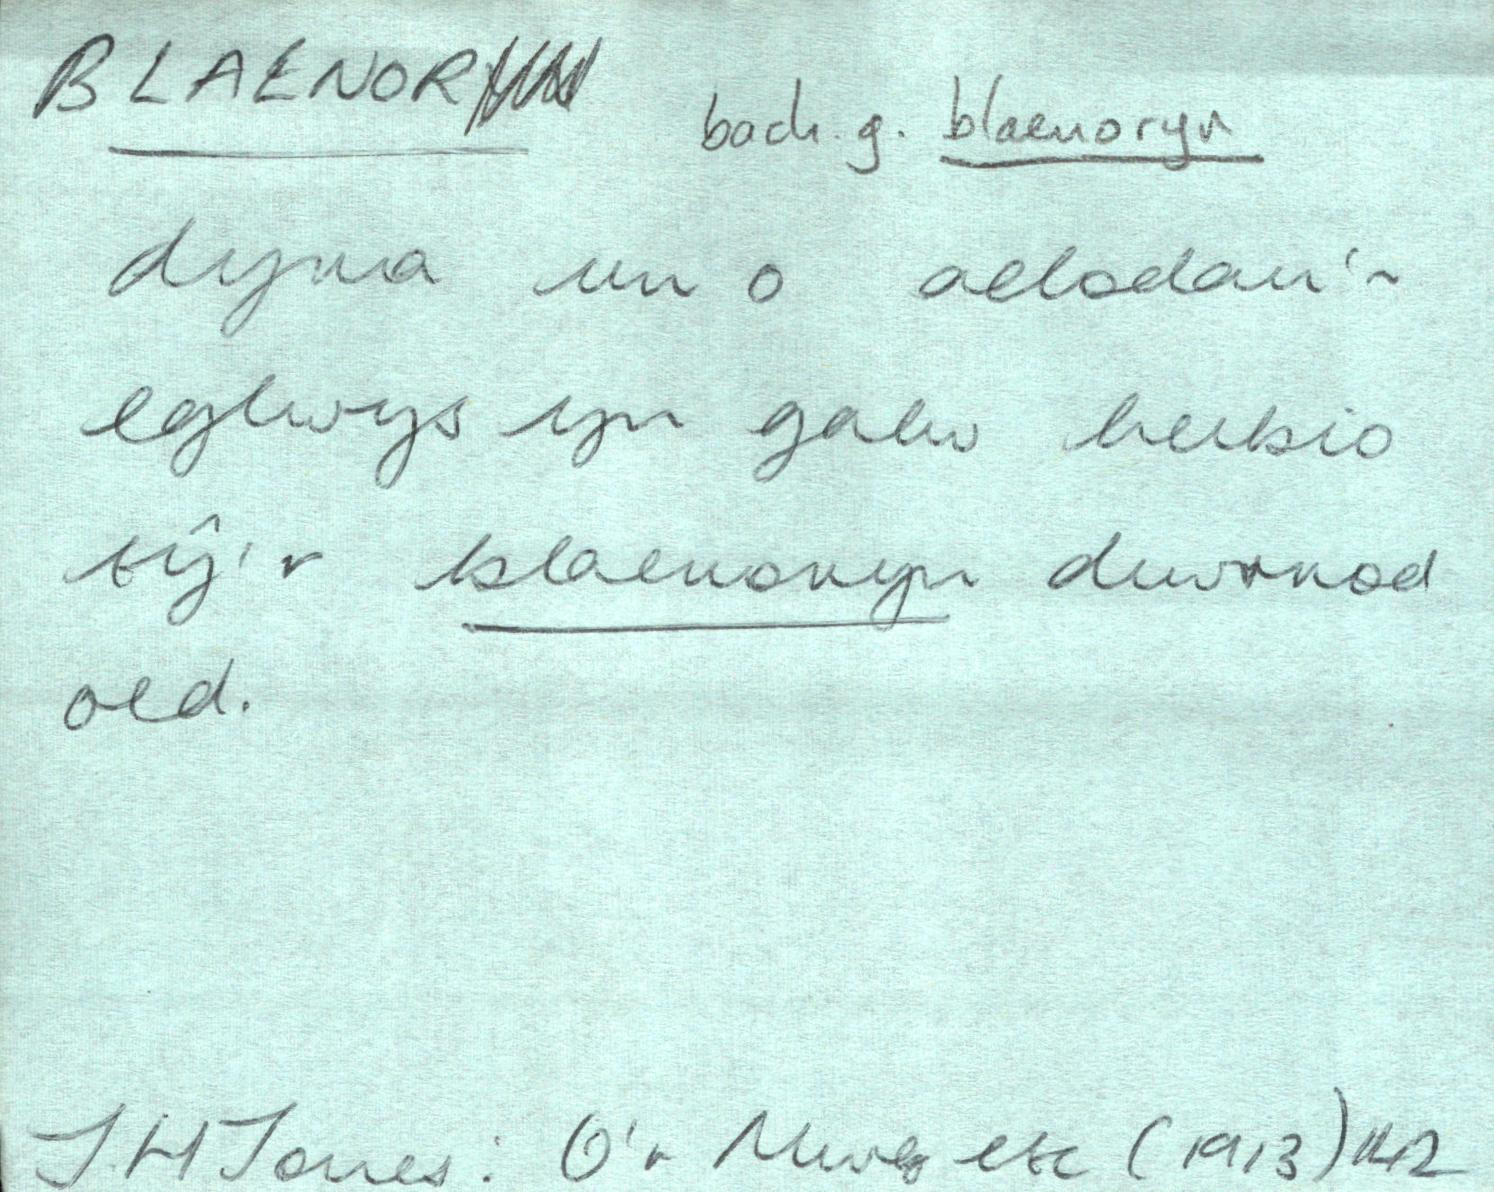 BLAENOR
bach. g. blaenoryn
dyma un o aelodau'r
eglwys yn galw heibio
tŷ'r blaenoryn diwrnod
oed.
J.H Jones: O'r Mwg etc (1913) 142